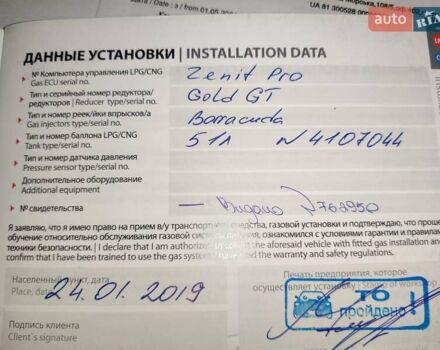 Дата / Date : a / from 01.05
Морська, 10/8
UA 81 300528 000
auto RIA
ДАННЫЕ УСТАНОВКИ | INSTALLATION DATA
№ Компьютера управления LPG/CNG
Gas ECU serial no.
Zenit Pro
Тип и серийный номер редуктора/
редукторов | Reducer type/serial no.
Gold GT
Тип и номер реек/йки впрыска/ов
Gas injectors type/serial no.
Barracuda
Тип и номер баллона LPG/CNG
Tank type/serial no.
51л N 4107044
Тип и номер датчика давления
Pressure sensor type/serial no.
Дополнительное оборудование
Additional equipment
№ свидетельства
— Видано 762950
Я заявляю, что я имею право на прием в/у транспортного средства, газовой установки и подтверждаю, что прошел
обучение относительно обслуживания газовой системы, ознакомился с условиями гарантии и правилами
техники безопасности. | I declare that I am authorized to collect the aforesaid vehicle with fitted gas installation and
confirm that I have been trained to use the gas system and the warranty and safety regulations.
Населенный пункт, дата
Place, date
24.01.2019
Печать предприятия, которое
осуществляет установку | Stamp of workshop
ТО
пройдено!
Подпись клиента
Client`s signature